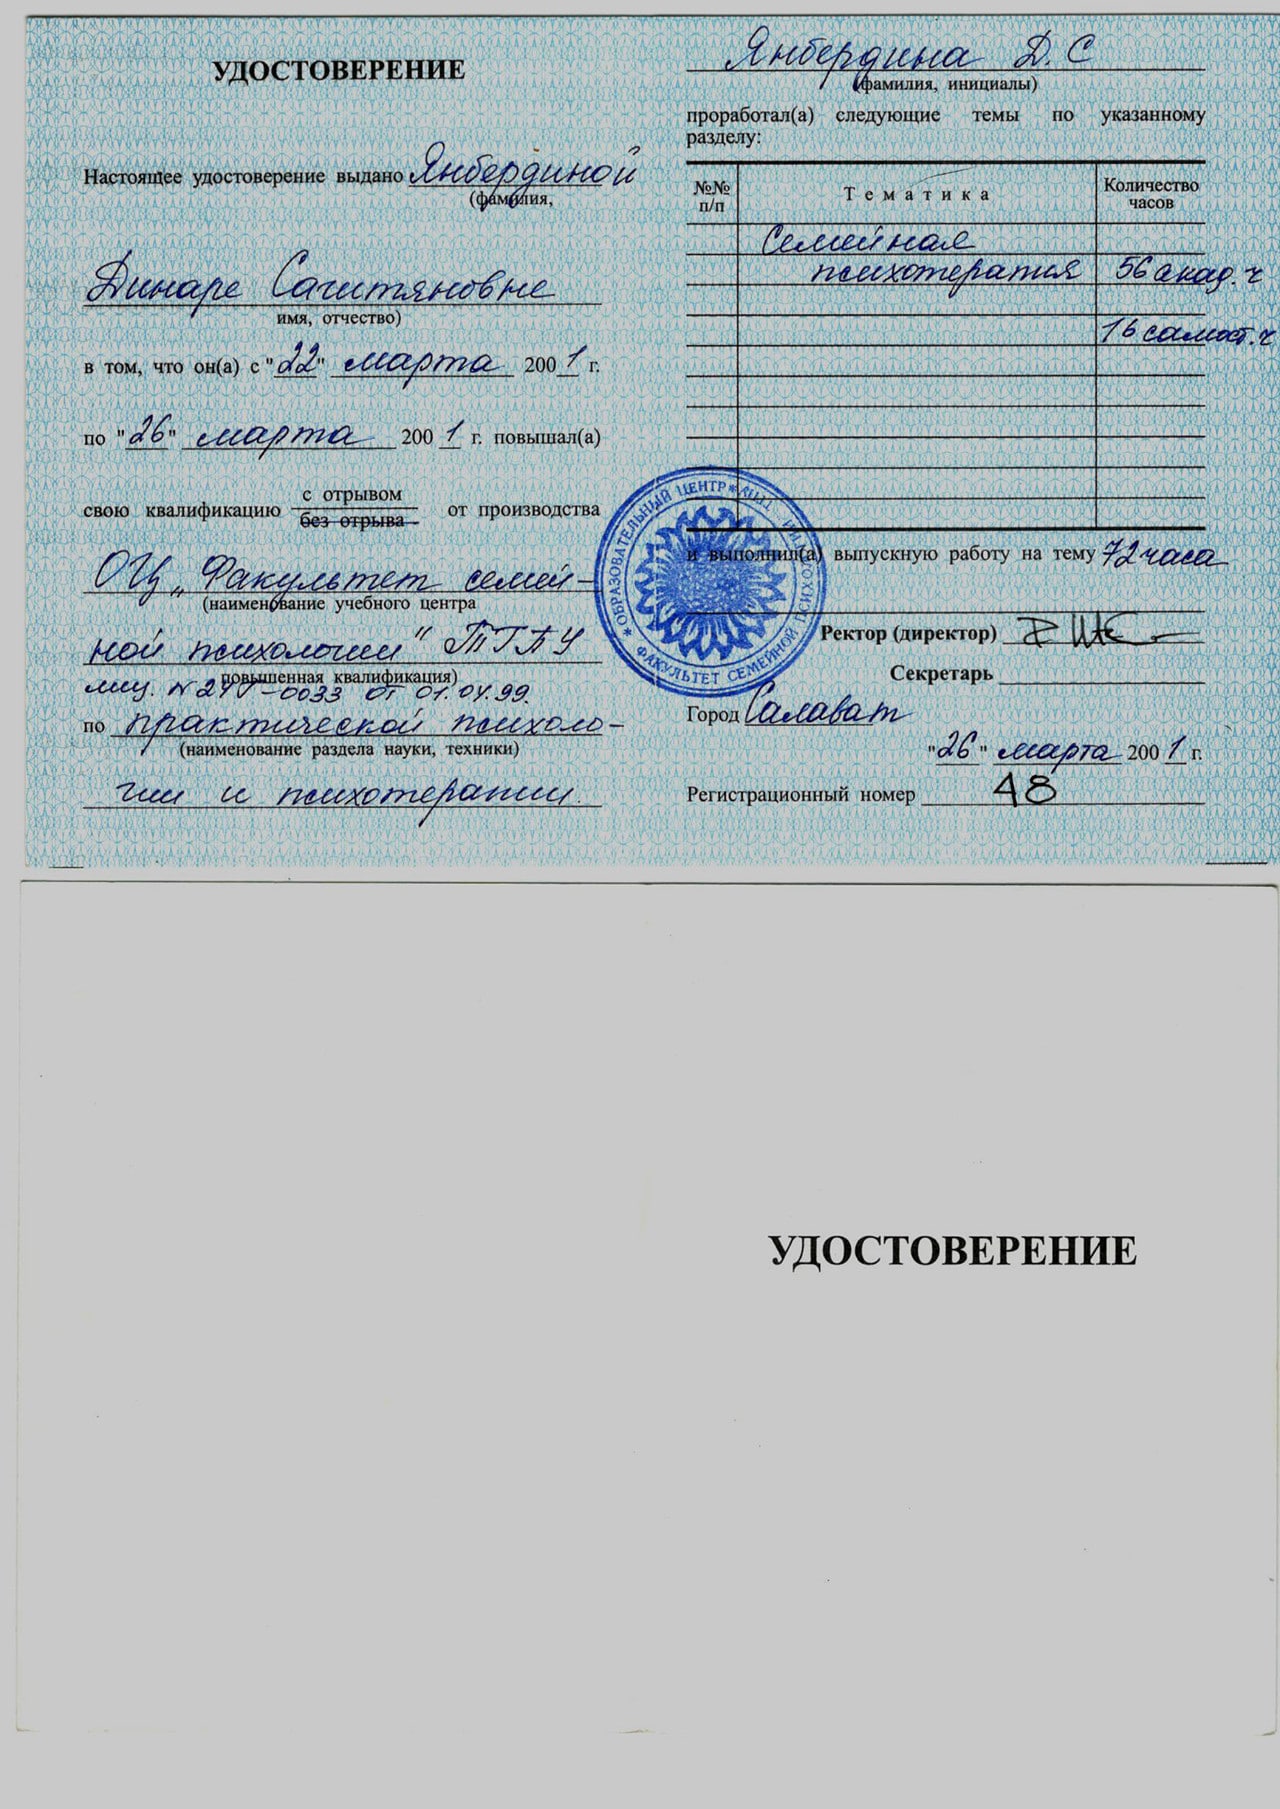 УДОСТОВЕРЕНИЕ
Настоящее удостоверение выдано Янбердиной
(фамилия,
Динаре Сагитяновне
имя, отчество)
в том, что он(а) с "22" марта 2001 г.
по "26" марта 2001 г. повышал(а)
с отрывом
свою квалификацию без отрыва от производства
ОЦ „Факультет семей-
(наименование учебного центра
ной психологии" ТГПУ
повышенная квалификация)
лиц. N 24Г-0033 от 01.04.99.
по практической психоло-
(наименование раздела науки, техники)
гии и психотерапии.
Янбердина Д. С
(фамилия, инициалы)
проработал(а) следующие темы по указанному
разделу:
№№ п/п Тематика Количество часов
Семейная
психотерапия 56 акад. ч
16 самост. ч
и выполнил(а) выпускную работу на тему 72 часа
Ректор (директор)
Секретарь
Город Салават
"26" марта 2001 г.
Регистрационный номер 48
* ОБРАЗОВАТЕЛЬНЫЙ ЦЕНТР * ФАКУЛЬТЕТ СЕМЕЙНОЙ ПСИХОТЕРАПИИ ТГПУ
УДОСТОВЕРЕНИЕ